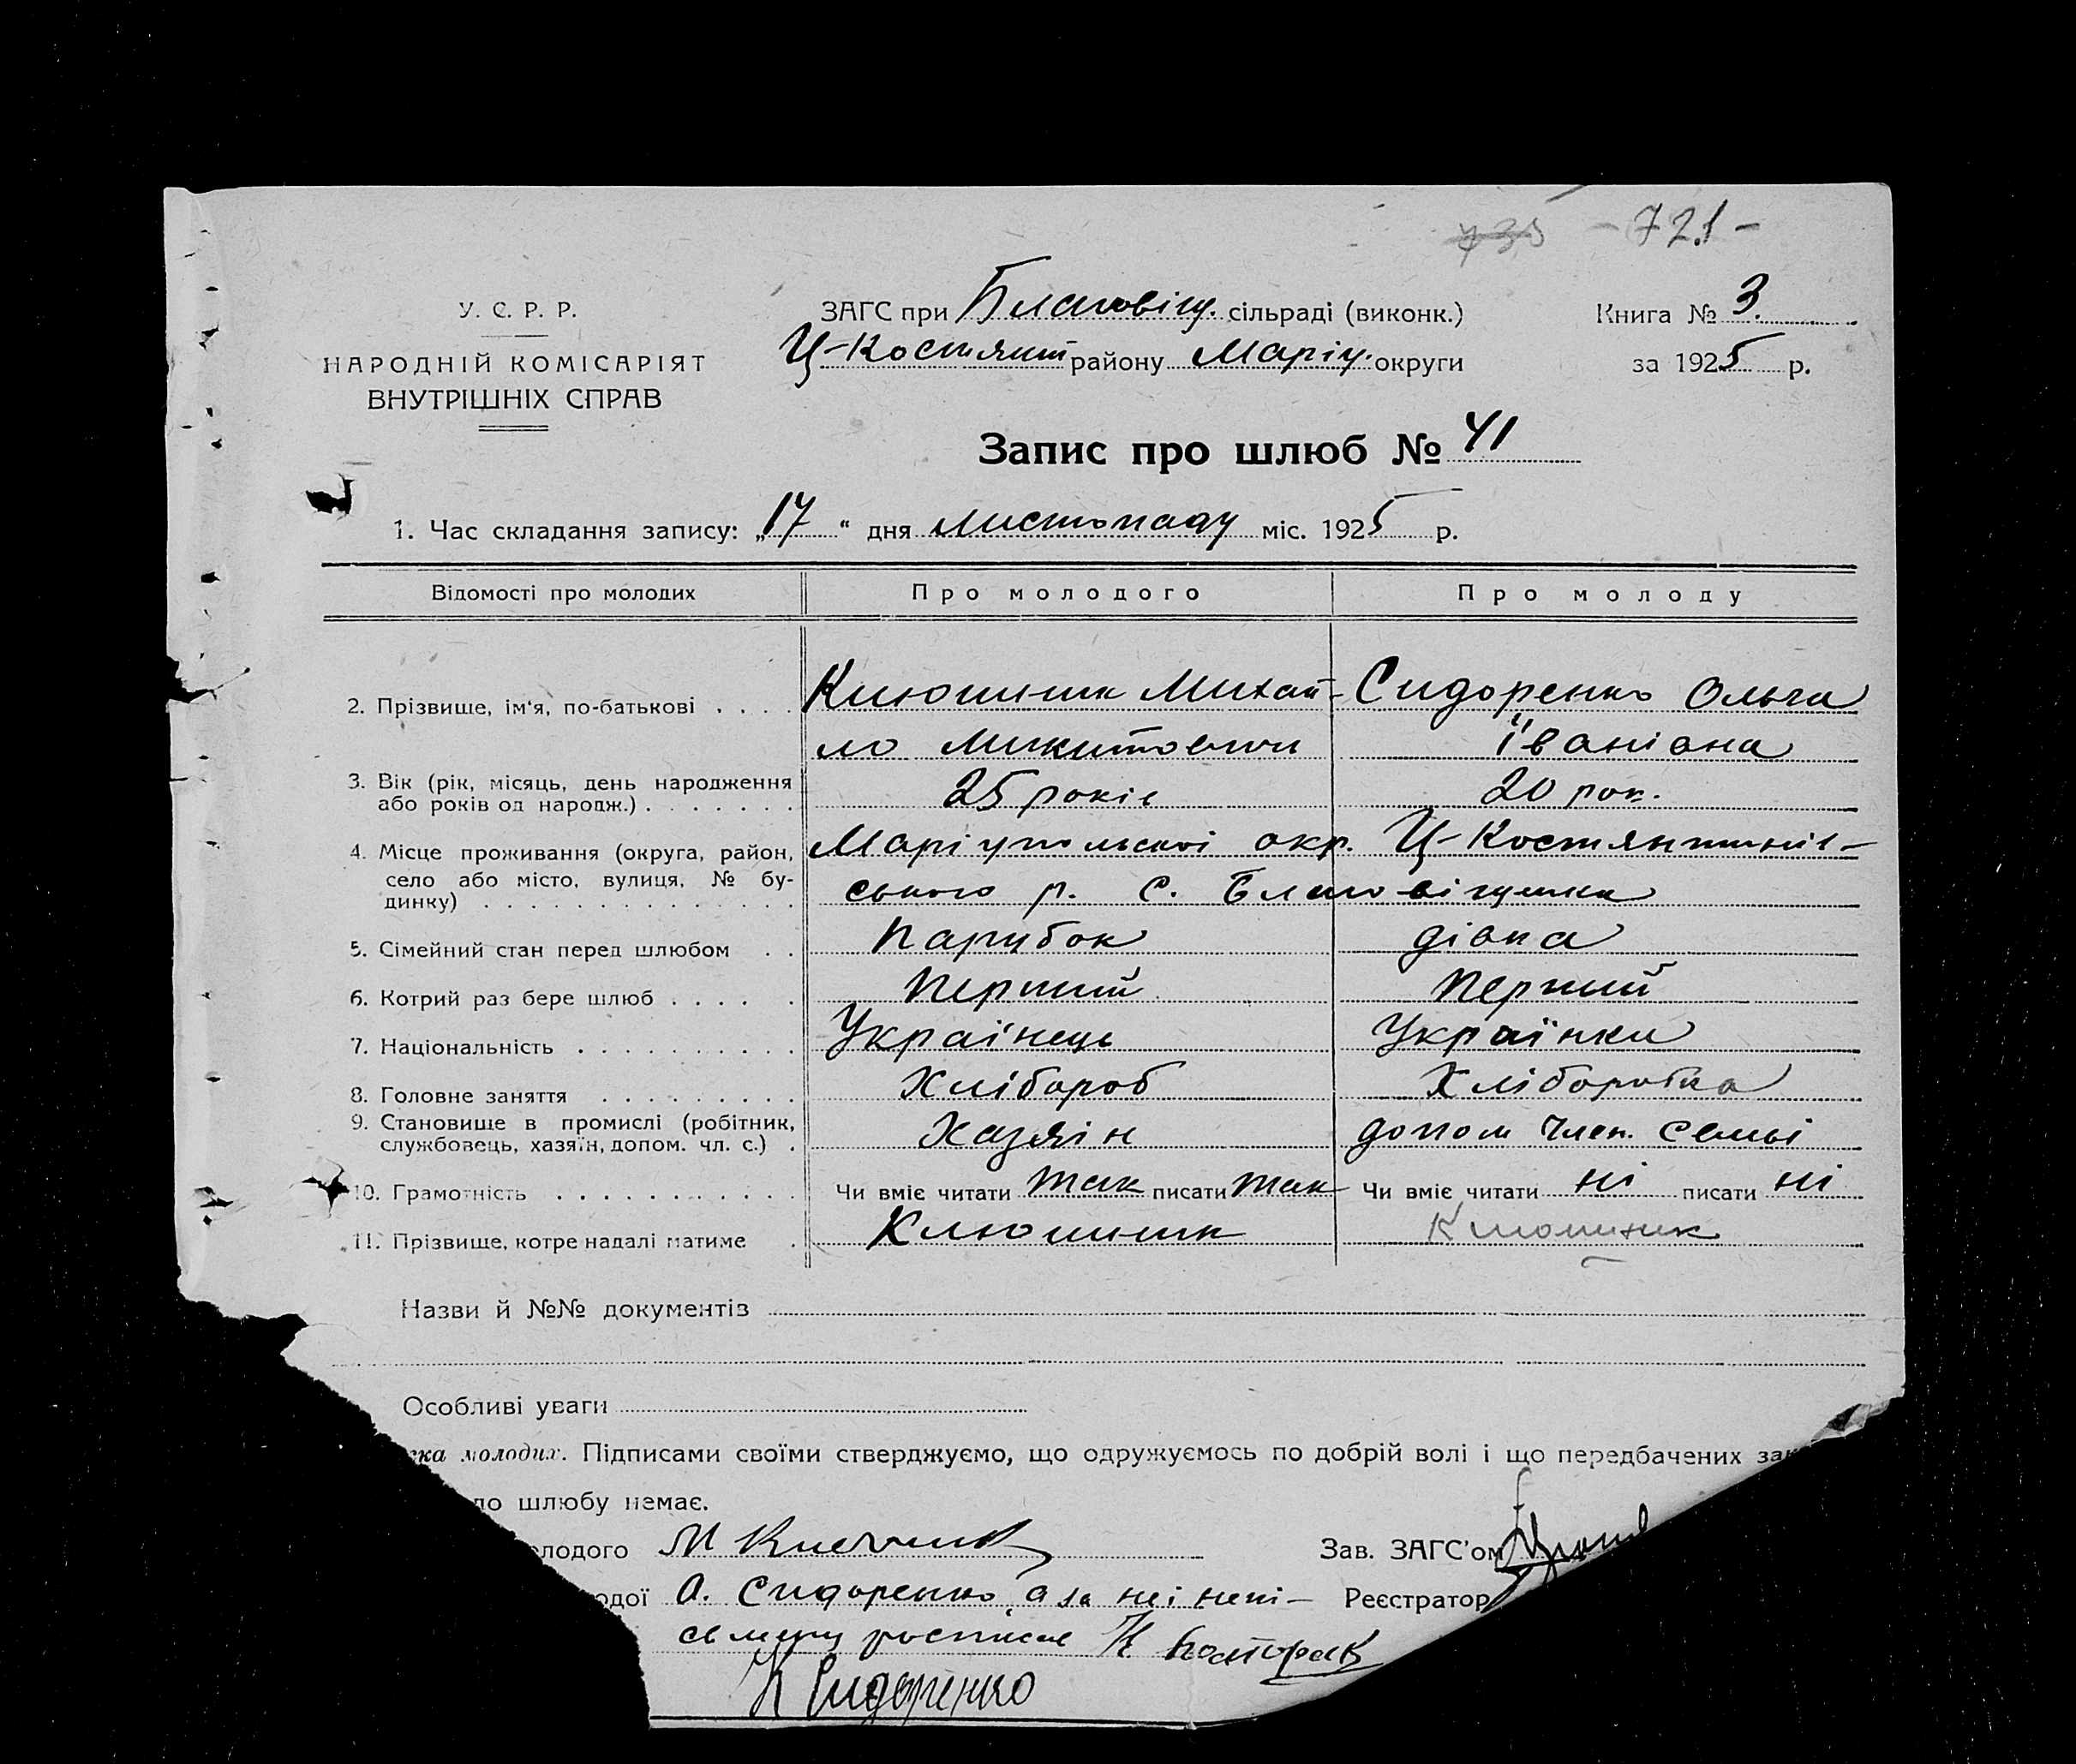 735 - 721 -
У. С. Р. Р.
НАРОДНІЙ КОМІСАРІЯТ
ВНУТРІШНІХ СПРАВ
ЗАГС при Благовіщ. сільраді (виконк.)
Ц-Костянт району Маріу. округи
Книга № 3.
за 1925 р.
Запис про шлюб № 41
1. Час складання запису: „17“ дня листопаду міс. 1925 р.
Відомості про молодих Про молодого Про молоду
2. Прізвище, ім'я, по-батькові . . . . Клюшник Михай- Сидоренко Ольга
ло Микитович Їванівна
3. Вік (рік, місяць, день народження
або років од народж.) . . . . . . . 25 років 20 рок.
4. Місце проживання (округа, район, Маріупольскої окр. Ц-Костянтинів-
село або місто, вулиця, № бу-
динку) . . . . . . . . . . . . . . ського р. С. Благовіщенка
5. Сімейний стан перед шлюбом . . Парубок дівка
6. Котрий раз бере шлюб . . . . . Перший Перший
7. Національність . . . . . . . . . . Українець Українка
8. Головне заняття . . . . . . . . . Хлібороб Хліборобка
9. Становище в промислі (робітник,
службовець, хазяїн, допом. чл. с.) . Хазяін допом член. семьі
10. Грамотність . . . . . . . . . . . Чи вміє читати так писати так Чи вміє читати ні писати ні
11. Прізвище, котре надалі матиме . Клюшник Клюшник
Назви й №№ документів
Особливі уваги
ка молодих. Підписами своїми стверджуємо, що одружуємось по добрій волі і що передбачених зак
до шлюбу немає.
олодого М Клюшник Зав. ЗАГС'ом
одої О. Сидоренко, а за неі непі- Реєстратор
сьмену росписав К
К Сидоренко